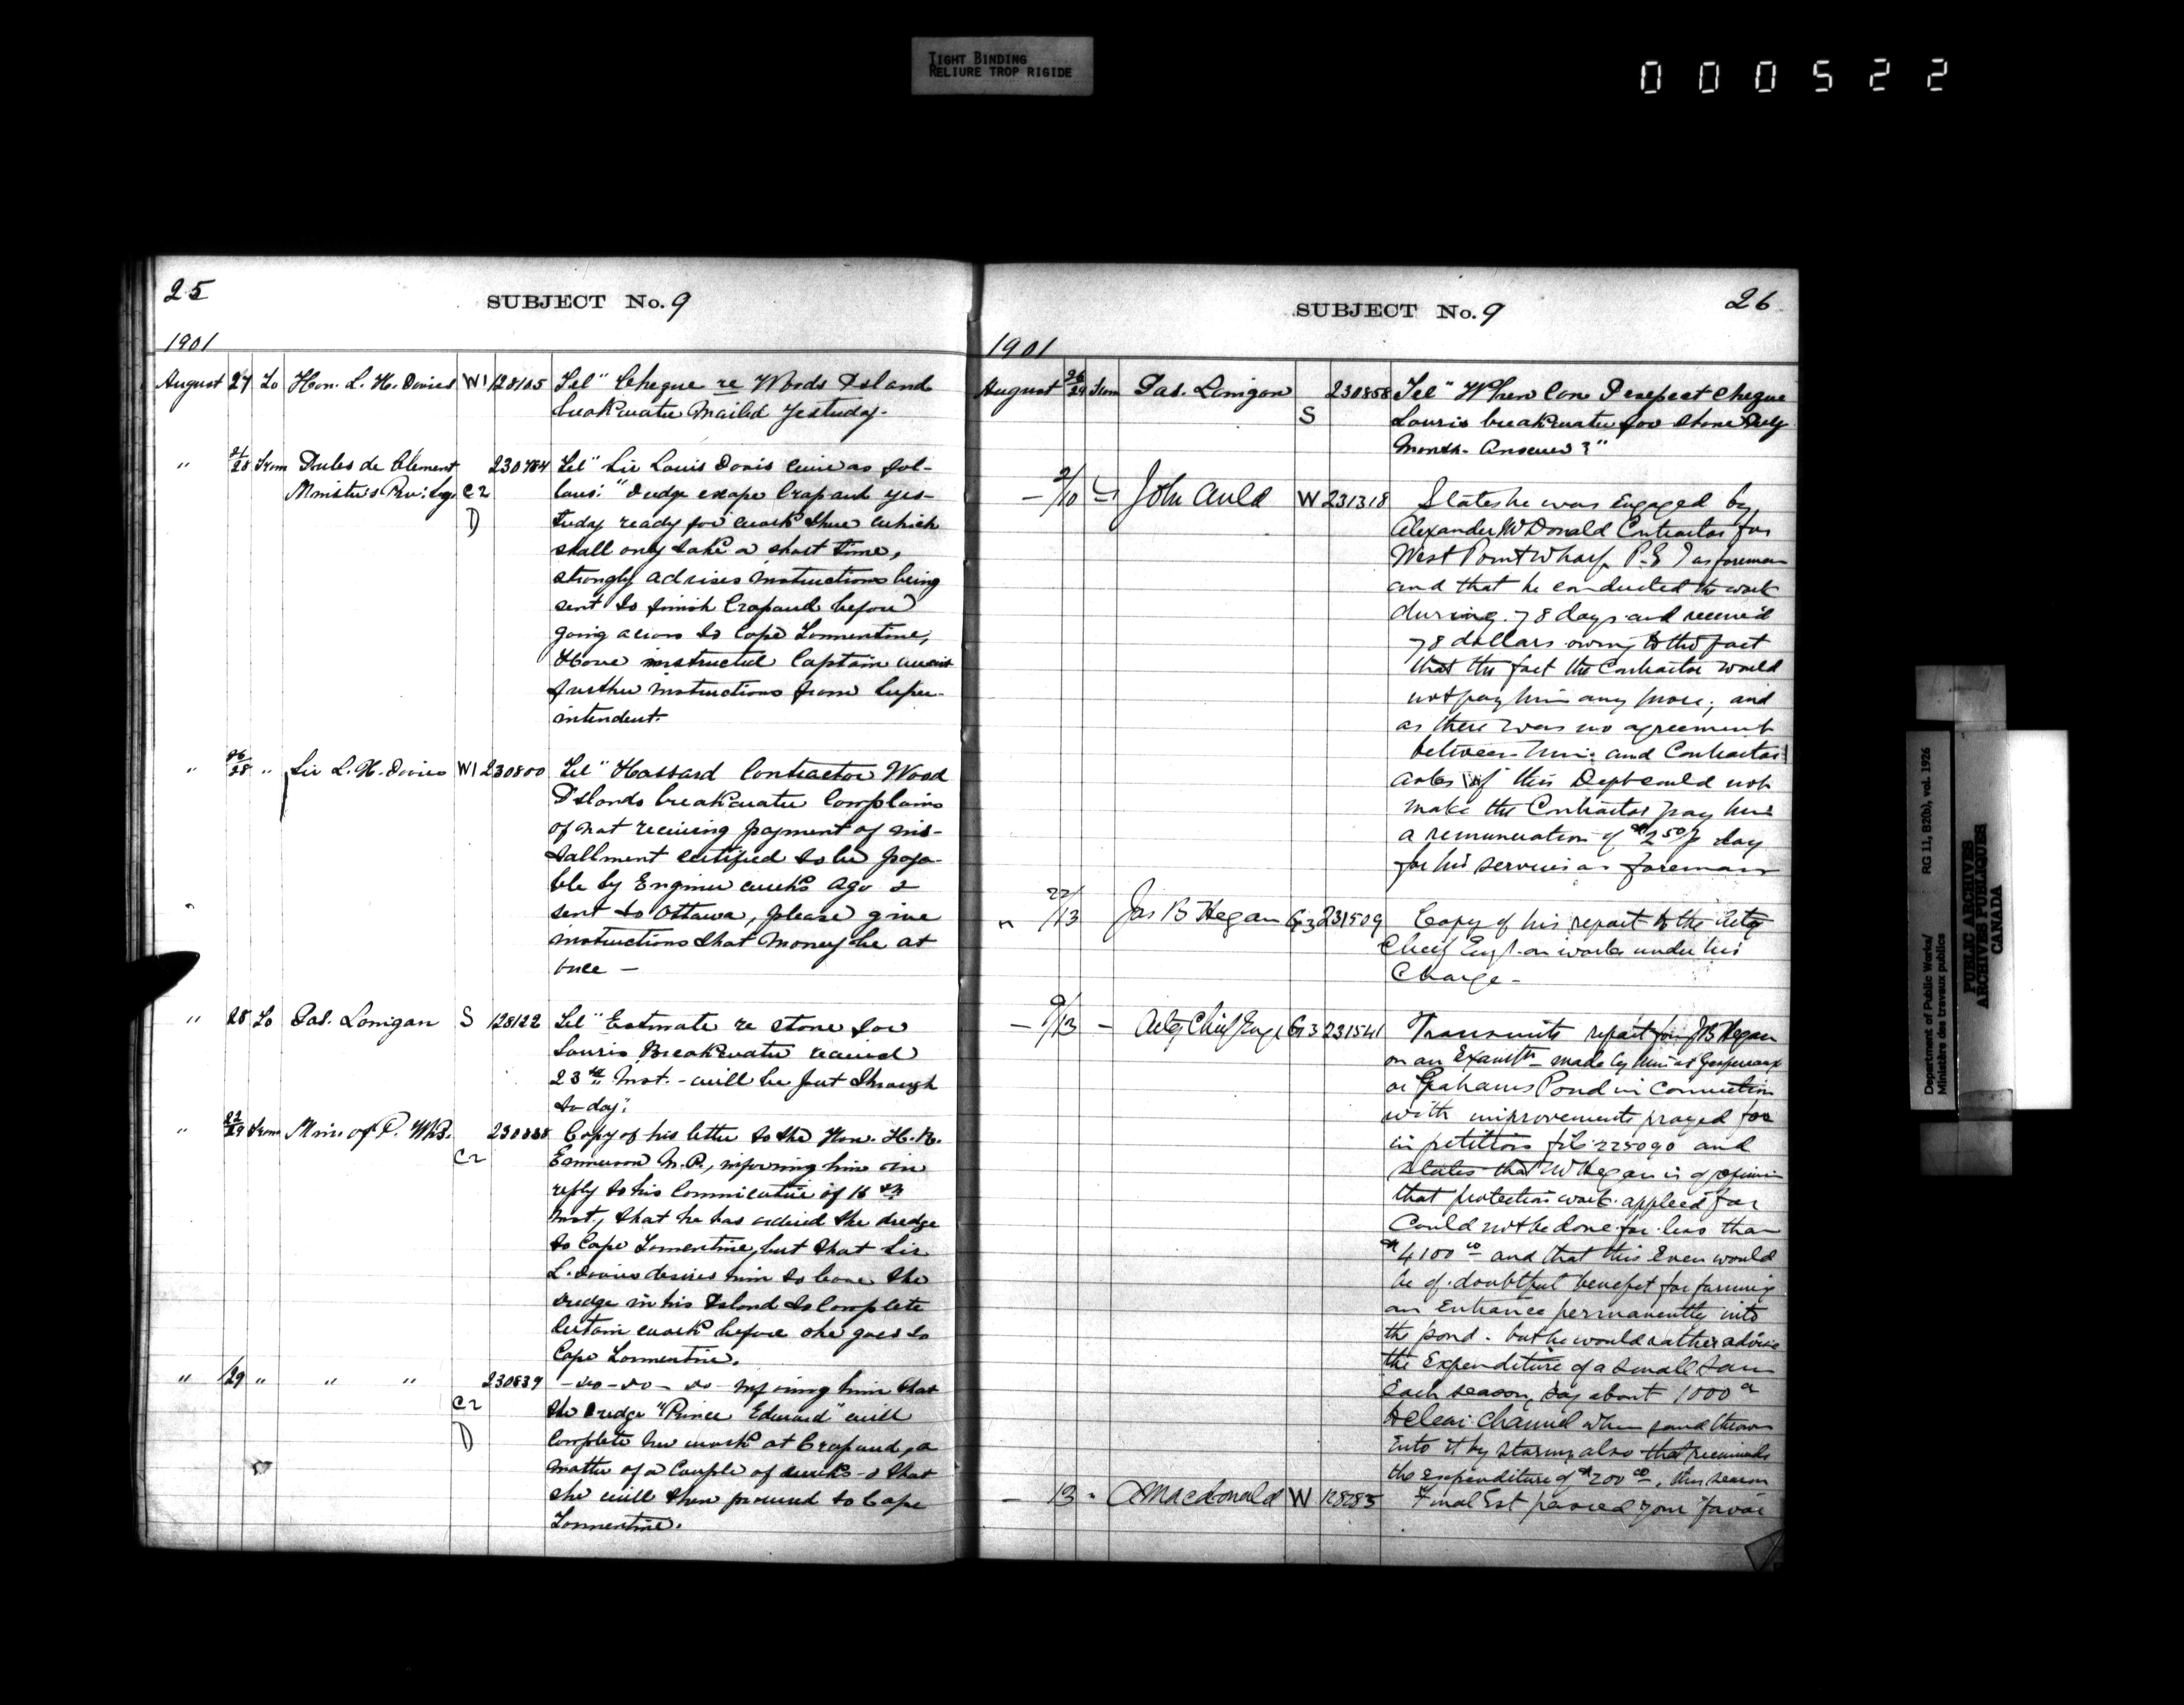 TIGHT BINDING
RELIURE TROP RIGIDE
000522
25
SUBJECT No. 9
1901
August 27 To Hon. L. H. Davies W1 128105 Tel" Cheque re Woods Island
breakwater mailed yesterday.
" 27/28 From Jules de Clement 230784 Tel" Sir Louis Davis wire as fol-
Minister's Priv: Sey. C2 lows: "Dredge escape Crapaud yes-
D terday ready for work there which
shall only take a short time,
strongly advises instructions being
sent to finish Crapaud before
going across to Cape Tormentine,
Have instructed Captain await
further instructions from Super-
intendent.
" 26/28 " Sir L. H. Davies W1 230800 Tel" Hassard Contractor Wood
Islands breakwater complains
of not receiving payment of ins-
tallment certified to be paya-
ble by Engineer weeks ago &
sent to Ottawa, please give
instructions that money be at
once —
" 28 To Pas. Lonigan S 128122 Tel" Estimate re stone for
Souris Breakwater received
23rd Inst. - will be put through
to-day."
" 22/29 From Min of P. Wks. 230838 Copy of his letter to the Hon. H. R.
C2 Emmerson M.P., informing him in
reply to his Communication of 16th
Inst., that he has ordered the dredge
to Cape Tormentine, but that Sir
L. Davies desires him to leave the
dredge in his Island to Complete
Certain work before she goes to
Cape Tormentine.
" /29 " " " 230839 - do - do - do - informing him that
C2 the dredge "Prince Edward" will
D Complete her work at Crapaud, a
matter of a Couple of weeks & that
she will then proceed to Cape
Tormentine.
SUBJECT No. 9
26
1901
August 26/29 From Pas. Lonigan 230858 Tel" When Can I expect cheque
S Souris breakwater for stone July
Month. Answer?"
— 2/10 John Auld W 231318 States he was engaged by
Alexander McDonald Contractor for
West Point Wharf P.E.I as foreman
and that he conducted the work
during 78 days and received
78 dollars owing to the fact
that the fact the Contractor would
not pay him any more; and
as there was no agreement
between him and Contractor
asks if this Dept could not
make the Contractor pay him
a remuneration of $2.50 p day
for his services as foreman
" 22/13 Jas B Hegan G3 231509 Copy of his report to the Actg
Chief Engr. on works under his
Charge -
— 9/13 — Actg Chief Engr G3 231541 Transmits report from JB Hegan
on an Examtn made by him at Gaspereaux
or Grahams Pond in Connection
with improvements prayed for
in petition file 225090 and
states that Mr Hegan is of opinion
that protection work applied for
Could not be done for less than
$4100 00 and that this Even would
be of doubtful benefit for forming
an Entrance permanently into
the pond. but he would rather advise
the Expenditure of a small sum
Each season, say about 1000
to clear Channel when sand thrown
into it by storm, also that recommends
the expenditure of $200 00, this season
— 13 " A Macdonald W 128283 Final Est passed your favor
Department of Public Works/
Ministère des travaux publics
RG 11, B2(b), vol. 1926
PUBLIC ARCHIVES
ARCHIVES PUBLIQUES
CANADA